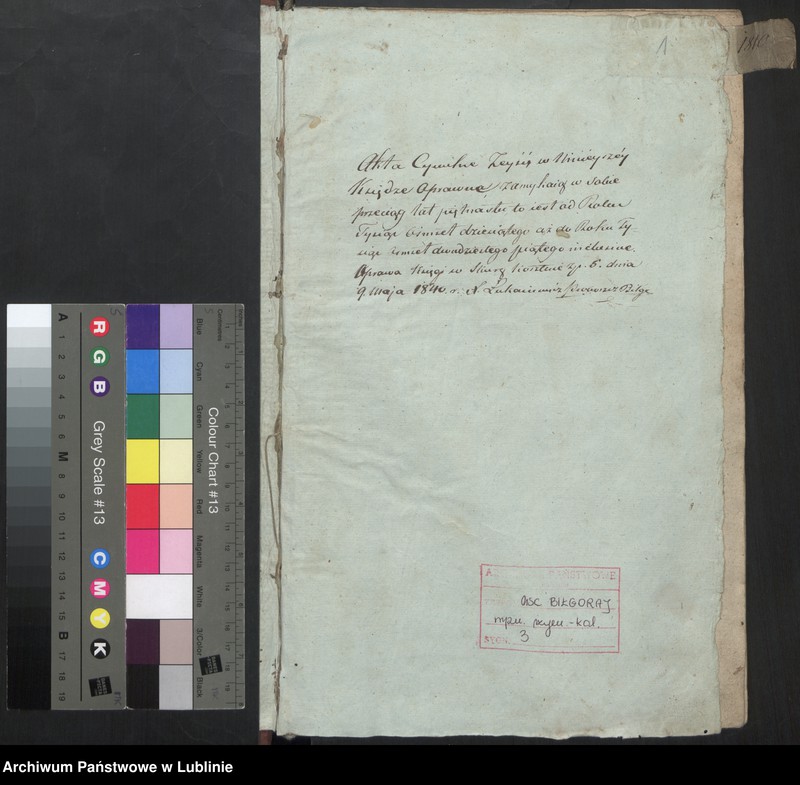 1
1810
Akta Cywilne Zeyść w Ninieyszéy
Księdze Oprawne, zamykaią w sobie
przeciąg lat piętnastu to iest od Roku
Tysiąc ośmset dziesiątego aż do Roku Ty-
siąc ośmset dwudziestego piątego inclusive.
Oprawa Księgi w Skurę kosztuie zł. 6. dnia
9. Maja 1840 r.
A. PAŃSTWOWE
USC BIŁGORAJ
rzym.-kat.
SYGN. 3
A 1 2 3 4 5 6 M 8 9 10 11 12 13 14 15 B 17 18 19
R G B
Grey Scale #13
C M Y K
Colour Chart #13
Blue Cyan Green Yellow Red Magenta White 3/Color Black
Centimetres
Inches
Archiwum Państwowe w Lublinie